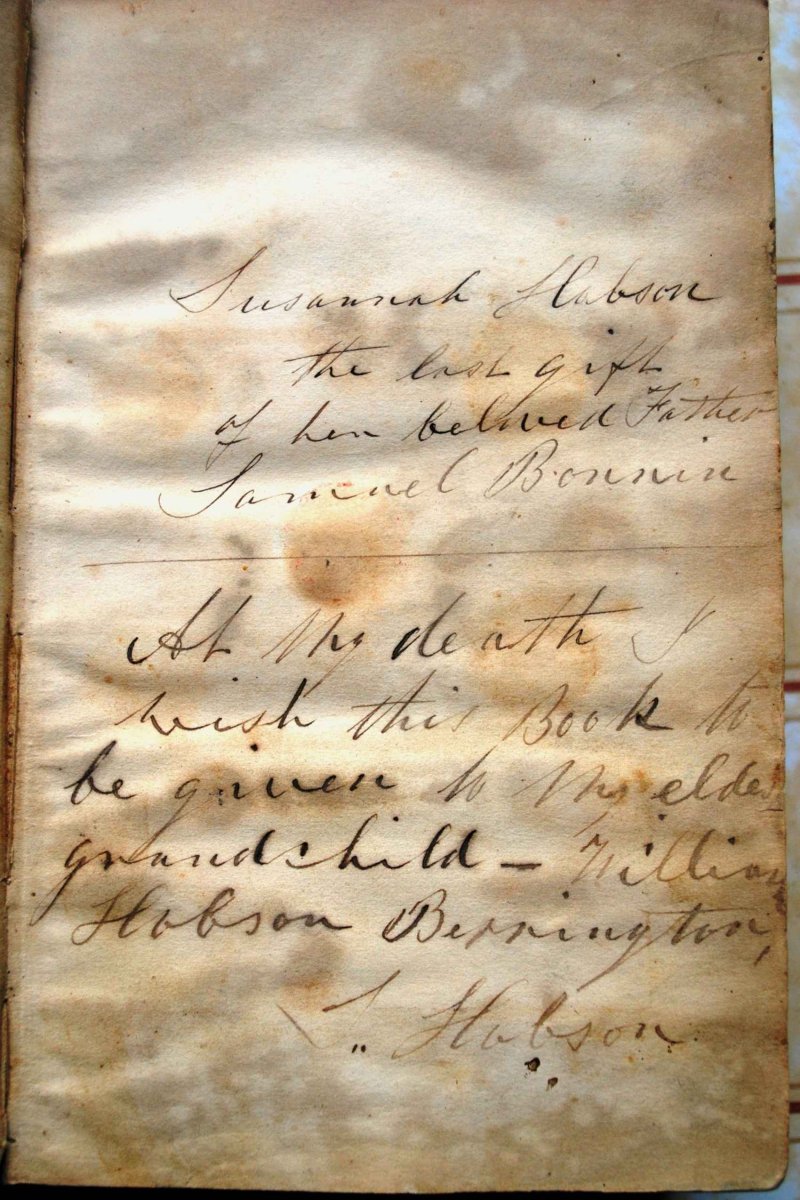 Susannah Hobson
the last gift
of her beloved Father
Samuel Bonnin
At my death I
wish this Book to
be given to my eldest
grandchild – William
Hobson Berrington,
S. Hobson